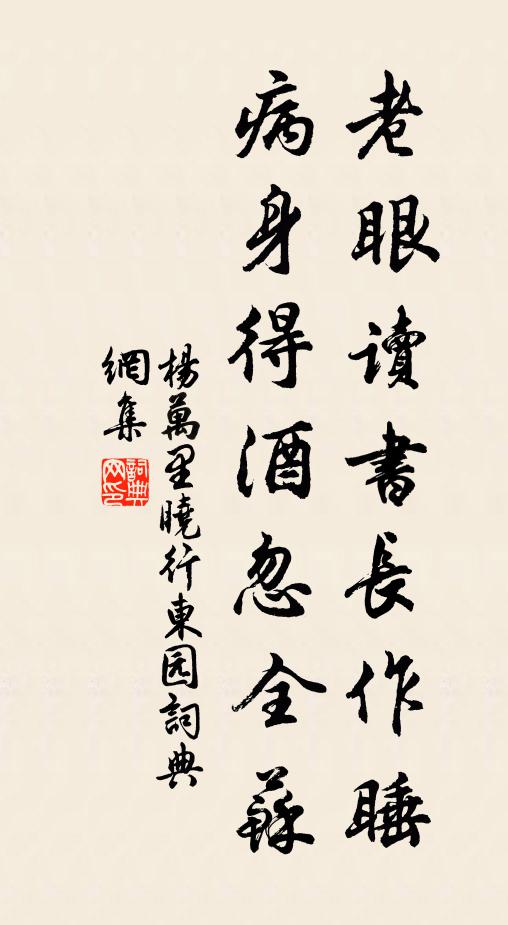 老眼讀書長作睡
病身得酒忽全蘇
楊萬里曉行東园詞典
網集
詞典网印